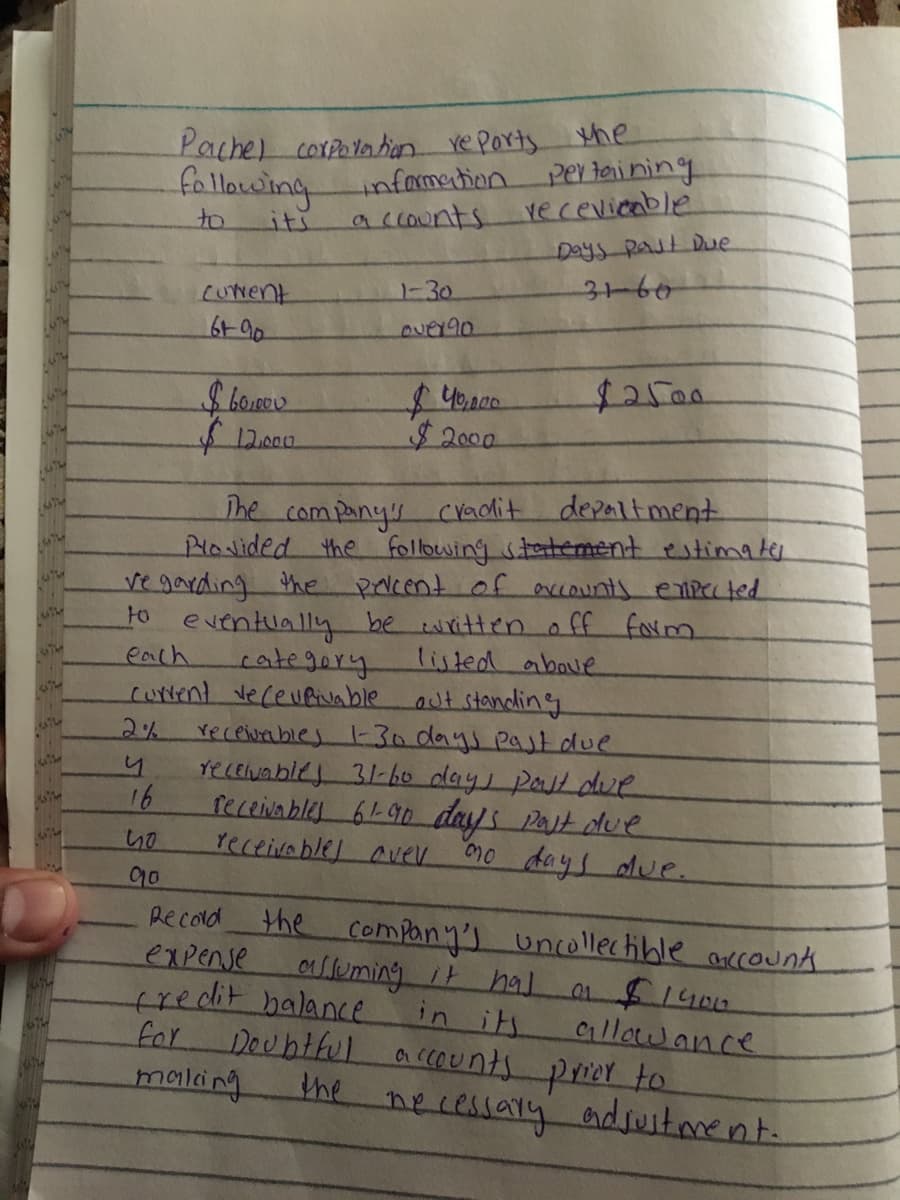 Pachel corporation reports the
following information pertaining
to its accounts recevienble
Days past Due
current 1-30 31-60
61-90 over 90
$ 60,000 $ 40,000 $ 2500
$ 12,000 $ 2000
The company's cradit depaltment
Provided the following statement estimates
regarding the percent of accounts expected
to eventually be written off form
each category listed above
current receveivable out standing
2% receivables 1-30 days past due
4 receivables 31-60 days past due
16 receivables 61-90 days past due
40 receivables over 90 days due.
90
Record the company's uncollectible accounts
expense assuming it has a $ 1400
credit balance in its allowance
for Doubtful accounts prior to
making the necessary adjustment.